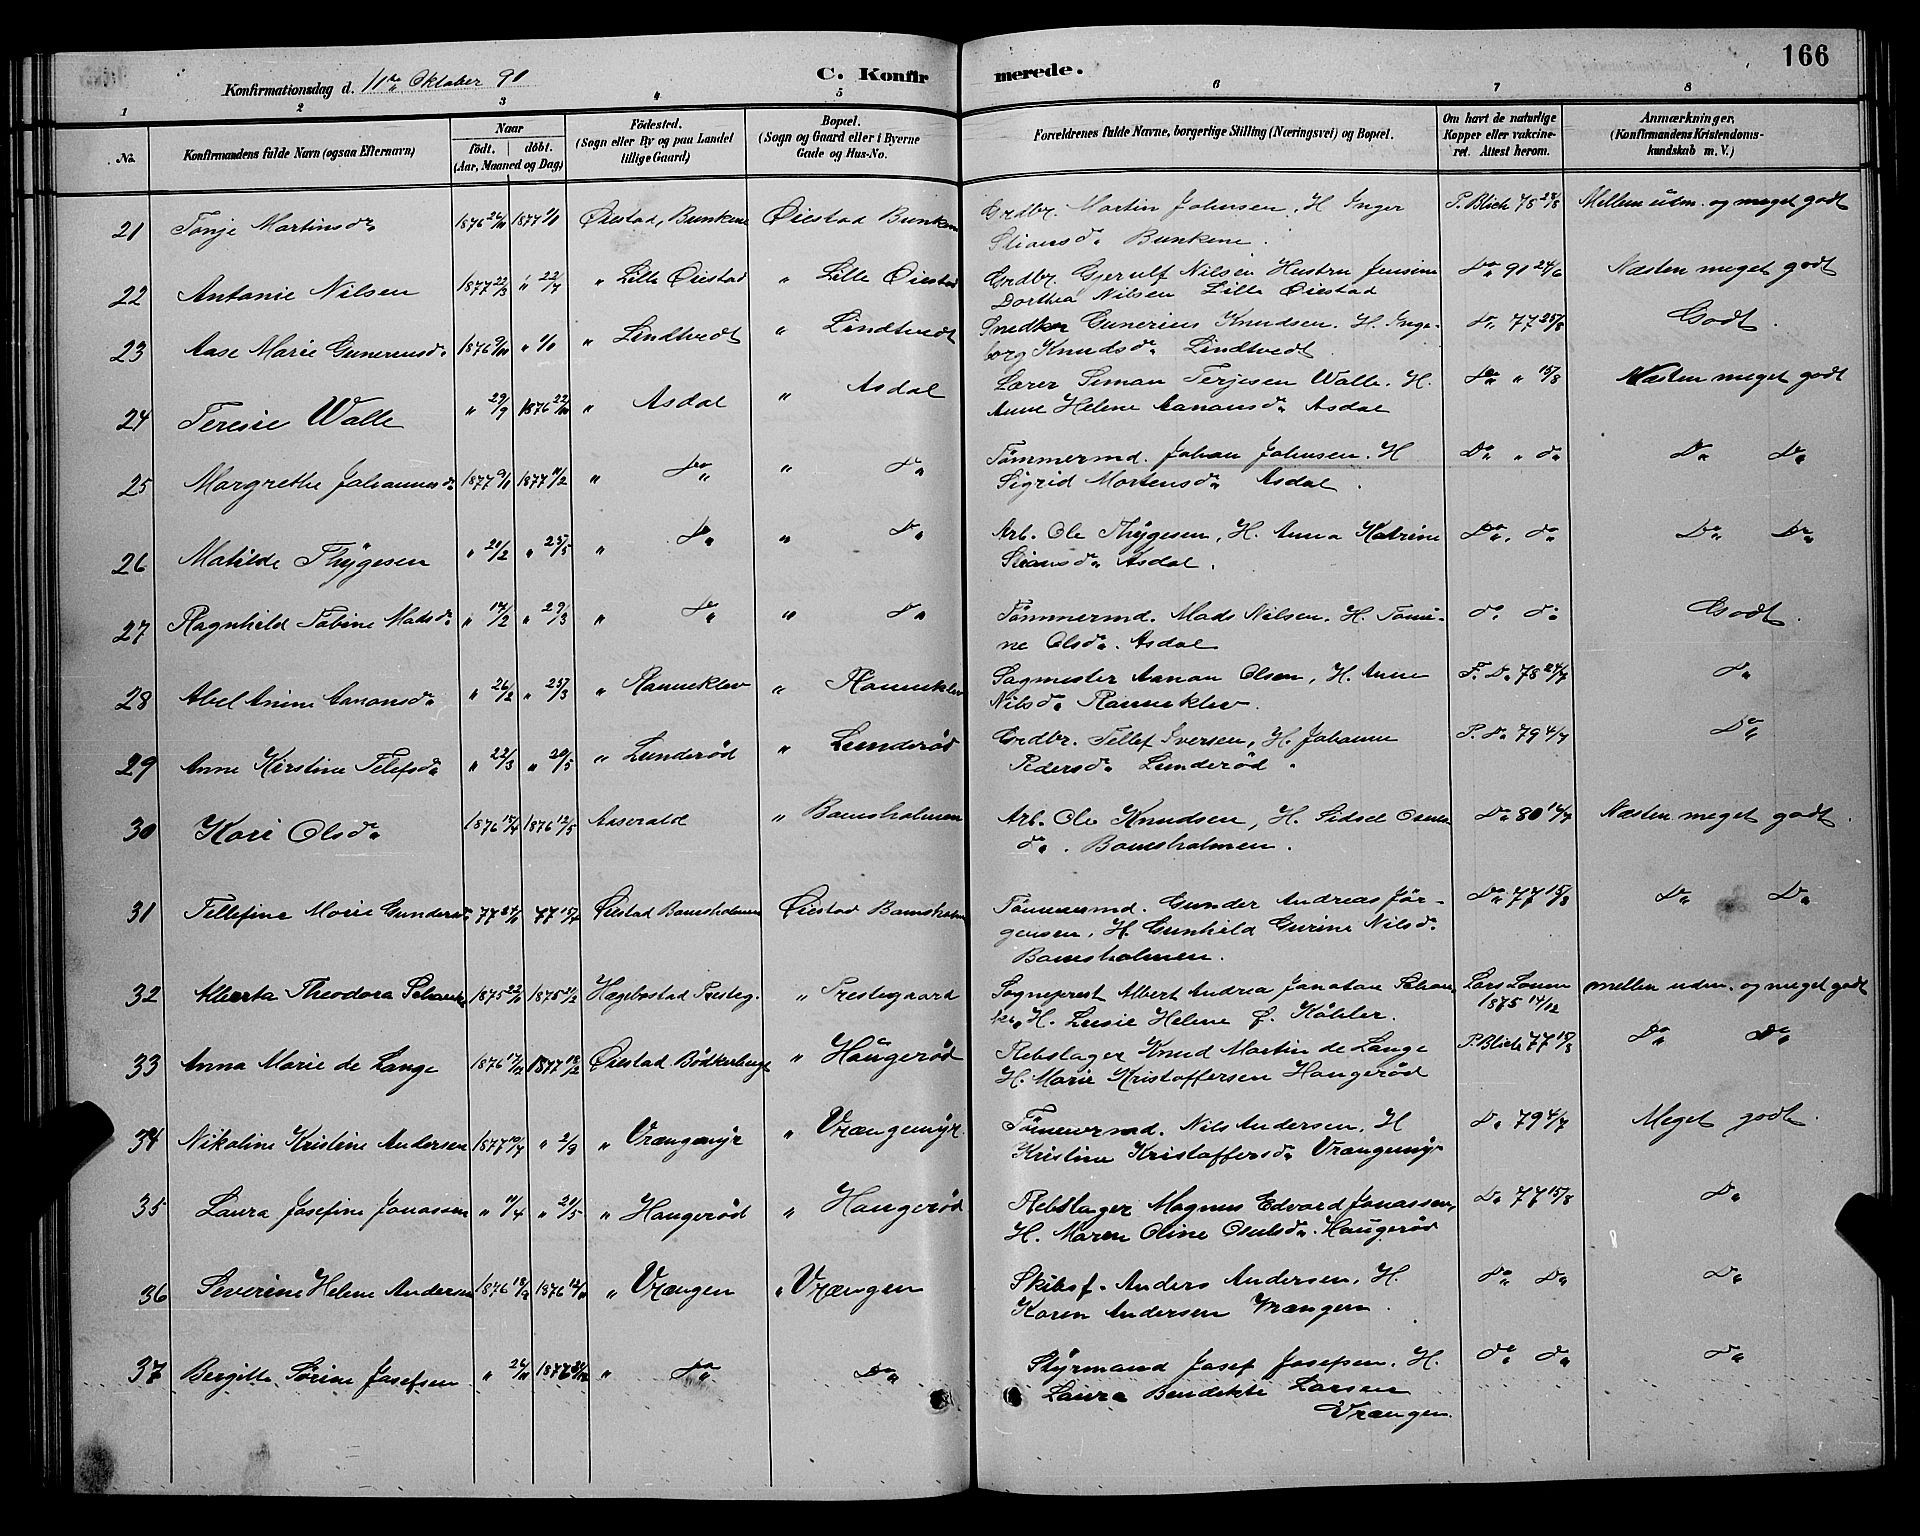 166
Konfirmationsdag d. 11te Oktober 91
C. Konfirmerede.
1 2 3 4 5 6 7 8
No. Konfirmandens fulde Navn (ogsaa Efternavn) Naar født. døbt. (Aar, Maaned og Dag) Fødested. (Sogn eller By og paa Landet tillige Gaard) Bopæl. (Sogn og Gaard eller i Byerne Gade og Hus-No. Forældrenes fulde Navne, borgerlige Stilling (Næringsvei) og Bopæl. Om havt de naturlige Kopper eller vakcineret. Attest herom. Anmærkninger. (Konfirmandens Kristendomskundskab m. V.)
21 Tonje Martinsdr 1876 26/11 1877 1/1 Øiestad, Bunkene Øiestad Bunkene Grdbr. Martin Johnsen, H Inger P. Blich 78 24/8 Mellem udm. og meget godt
Stiansdr Bunkene.
22 Antonie Nilsen 1877 22/3 " 22/7 " Lille Øiestad " Lille Øiestad Grdbr. Gjerulf Nilsen Hustru Jensine Do 91 24/6 Næsten meget godt
Dorthea Nilsen Lille Øiestad
23 Aase Marie Gunerusdr 1876 9/10 " 1/1 " Lindtvedt " Lindtvedt Snedker Gunerius Knudsen. H. Inge- Do 77 25/8 Godt.
borg Knudsdr Lindtvedt
24 Teresie Walle " 29/9 1876 22/10 " Asdal " Asdal Lærer Simon Terjesen Walle. H. Do " 15/8 Næsten meget godt
Anne Helene Aanonsdr Asdal
25 Margrethe Johannesdr 1877 9/1 1877 11/2 " Do " Do Tømmermd. Johan Johnsen. H Do " do Do Do
Sigrid Mortensdr Asdal.
26 Matilde Thygesen " 21/2 " 25/5 " Do " Do Arb. Ole Thygesen, H. Anna Katrine Do. do Do Do
Stiansdr Asdal.
27 Ragnhild Tobine Madsdr " 14/2 " 29/3 " Do " Do Tømmermd. Mads Nilsen. H. Tomi- do do Godt.
ne Olsdr. Asdal
28 Abel Anine Aanonsdr " 26/2 " 25/3 " Ranneklev " Ranneklev Sagmester Aanon Olsen, H. Anne F. Do 78 24/7 Do
Nilsdr Ranneklev.
29 Anne Kirstine Telefsdr " 22/3 " 20/5 " Lunderød " Lunderød Grdbr. Tellef Iversen, H. Johanne P. Do 79 4/7 Do
Pedersdr Lunderød.
30 Kari Olsdr 1876 14/4 1876 12/5 Aaserald " Bomsholmen Arb. Ole Knudsen, H. Sidsel Do 80 14/7 Næsten meget godt.
dr. Bomsholmen.
31 Tellefine Marie Gundersdr 77 77 15/4 Øiestad Bomsholmen Øiestad Bomsholm Tømmermd. Gunder Andreas Jør- Do 77 15/8 Do Do
gensen, H. Gunhild Gurine Nilsdr.
Bomsholmen.
32 Alberta Theodora 1875 1875 21/12 Hægebostad Presteg. " Prestegaard Sogneprest Albert Andrea Jonatan Lars mellem udm. og meget godt
H. Lusie Helene f. Köhler. 1875 14/12
33 Anna Marie de Lange 1876 17/12 1877 18/2 Øiestad " Haugerød Rebslager Knud Martin de Lange P. Blich 77 15/8 Do Do
H. Marie Kristoffersen Haugerød
34 Nikoline Kristine Andersen 1877 10/7 " 2/9 " Vrængemyr " Vrængemyr. Tømmermd. Nils Andersen, H Do 79 4/7 Meget godt.
Kristine Kristoffersdr Vrængemyr
35 Laura Josefine Jonassen " 11/4 " 21/5 " Haugerød " Haugerød Rebslager Magnus Edvard Jonassen, Do 77 15/8 Do
H. Maren Oline Osulsdr. Haugerød
36 Severine Helene Andersen 1876 18/9 1876 12/11 " Vrængen " Vrængen Skibsf. Anders Andersen, H. Do Do Do
Karen Andersen Vrængen.
37 Bergitte Sørine Josefsen " 26/11 1876 " Do Do Styrmand Josef Josefsen. H. do do Do
Laura Bendikte Larsen
Vrængen.